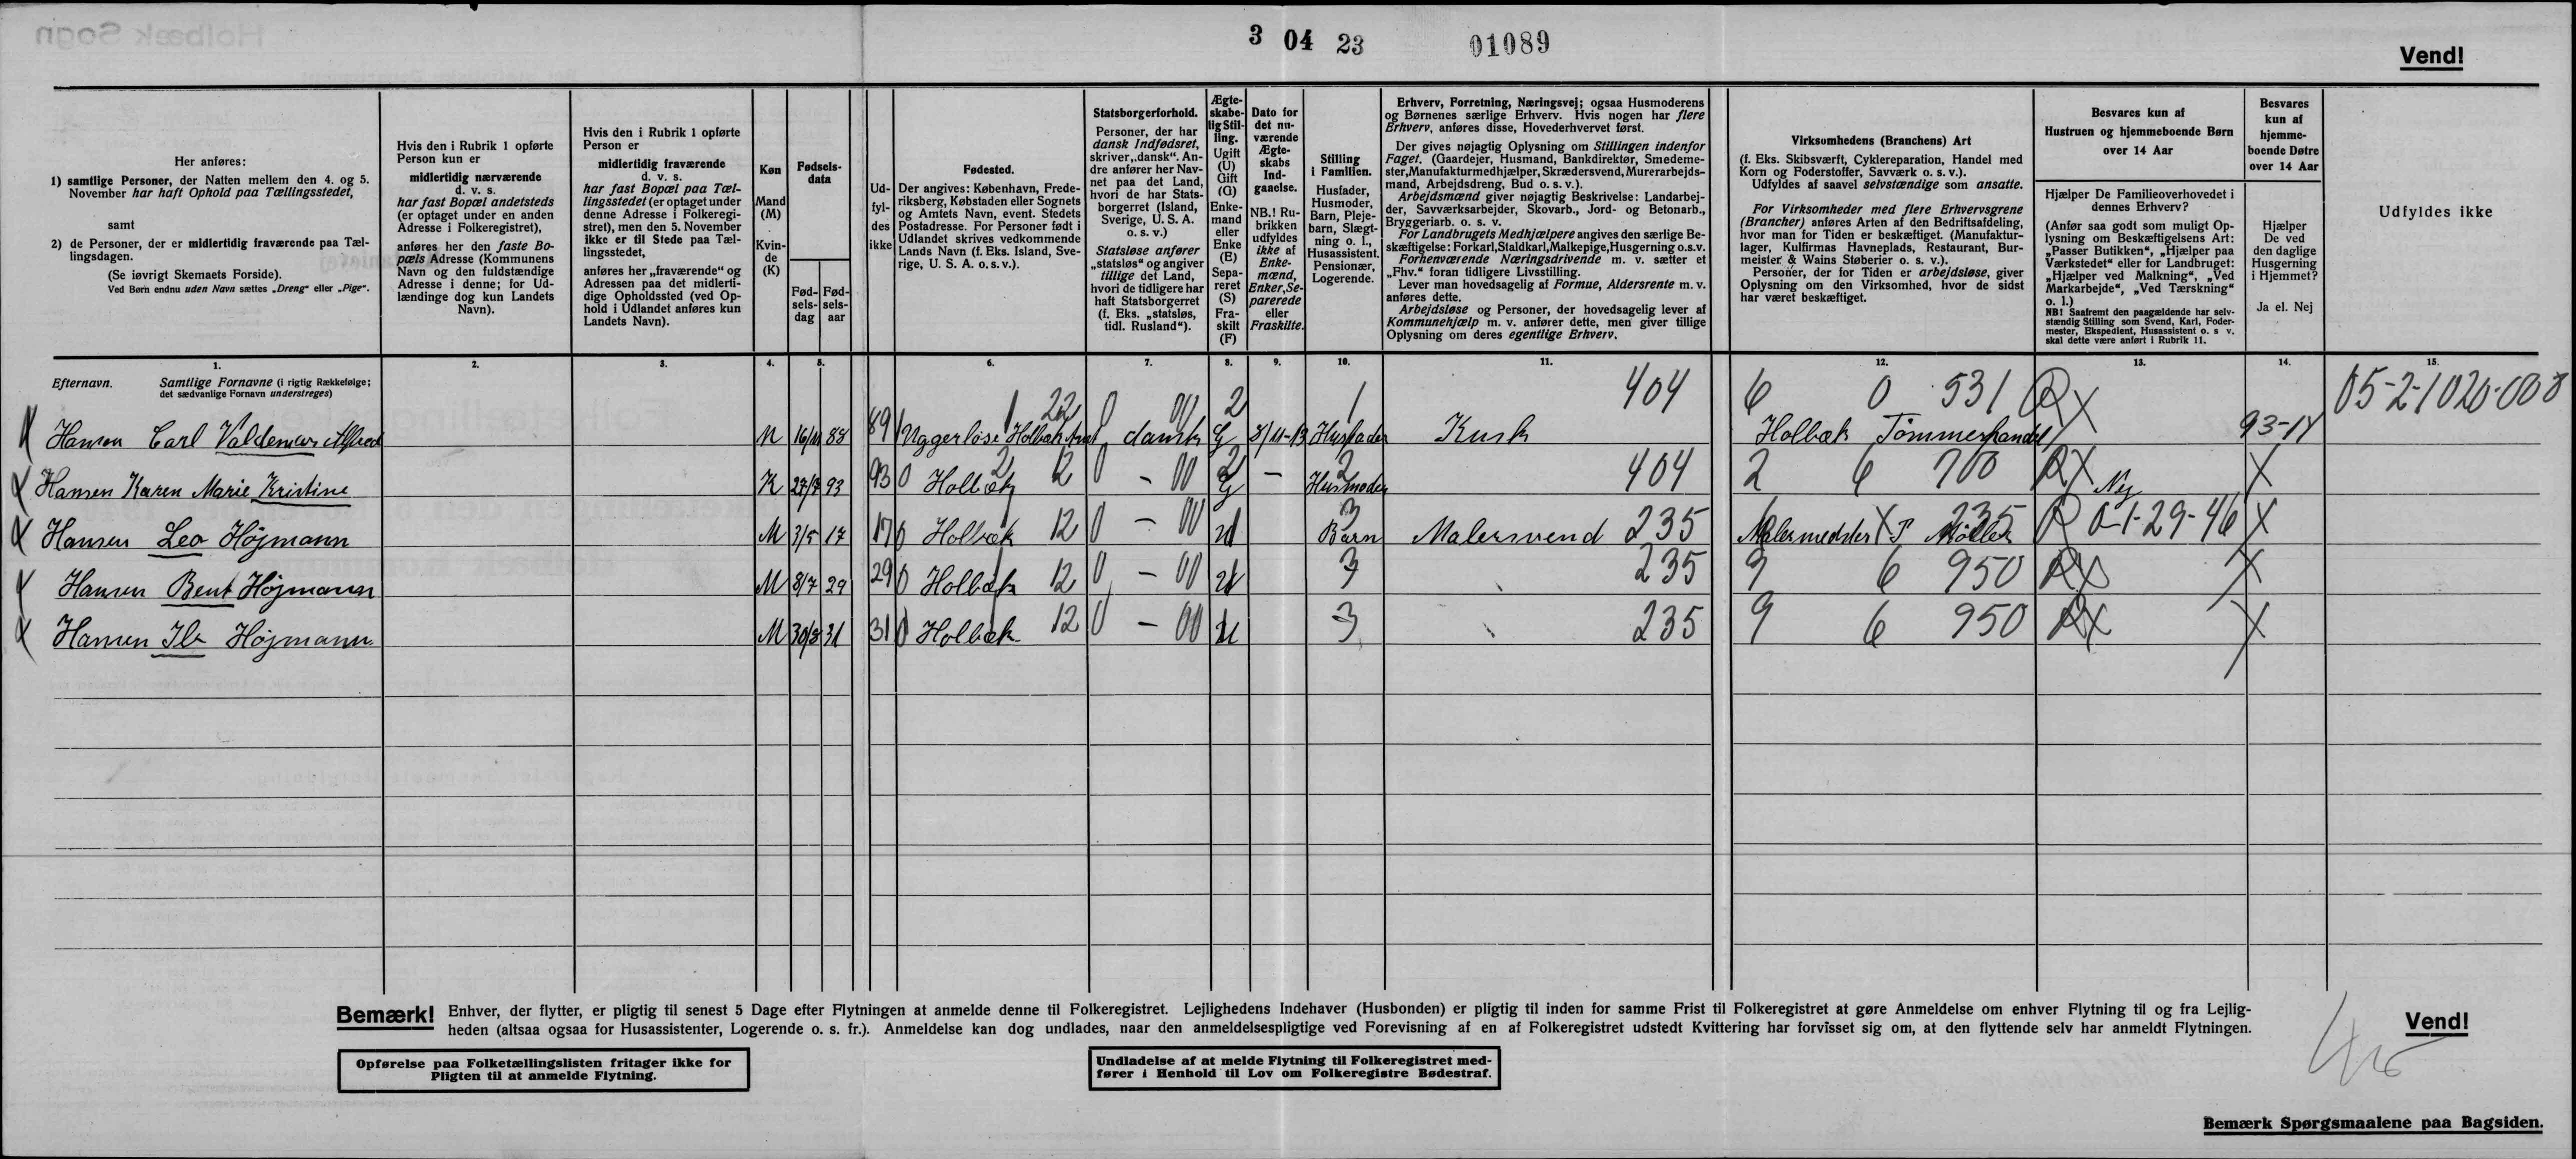 Holbæk Sogn
3 04 23 01089
Vend!
Her anføres:
1) samtlige Personer, der Natten mellem den 4. og 5.
November har haft Ophold paa Tællingsstedet,
samt
2) de Personer, der er midlertidig fraværende paa Tæl-
lingsdagen.
(Se iøvrigt Skemaets Forside).
Ved Børn endnu uden Navn sættes „Dreng" eller „Pige".
Hvis den i Rubrik 1 opførte
Person kun er
midlertidig nærværende
d. v. s.
har fast Bopæl andetsteds
(er optaget under en anden
Adresse i Folkeregistret),
anføres her den faste Bo-
pæls Adresse (Kommunens
Navn og den fuldstændige
Adresse i denne; for Ud-
lændinge dog kun Landets
Navn).
Hvis den i Rubrik 1 opførte
Person er
midlertidig fraværende
d. v. s.
har fast Bopæl paa Tæl-
lingsstedet (er optaget under
denne Adresse i Folkeregi-
stret), men den 5. November
ikke er til Stede paa Tæl-
lingsstedet,
anføres her „fraværende" og
Adressen paa det midlerti-
dige Opholdssted (ved Op-
hold i Udlandet anføres kun
Landets Navn).
Køn
Mand
(M)
Kvin-
de
(K)
Fødsels-
data
Fød-
sels-
dag
Fød-
sels-
aar
Ud-
fyl-
des
ikke
Fødested.
Der angives: København, Frede-
riksberg, Købstaden eller Sognets
og Amtets Navn, event. Stedets
Postadresse. For Personer født i
Udlandet skrives vedkommende
Lands Navn (f. Eks. Island, Sve-
rige, U. S. A. o. s. v.).
Statsborgerforhold.
Personer, der har
dansk Indfødsret,
skriver „dansk". An-
dre anfører her Nav-
net paa det Land,
hvori de har Stats-
borgerret (Island,
Sverige, U. S. A.
o. s. v.)
Statsløse anfører
„statsløs" og angiver
tillige det Land,
hvori de tidligere har
haft Statsborgerret
(f. Eks. „statsløs,
tidl. Rusland").
Ægte-
skabe-
lig Stil-
ling.
Ugift
(U)
Gift
(G)
Enke-
mand
eller
Enke
(E)
Sepa-
reret
(S)
Fra-
skilt
(F)
Dato for
det nu-
værende
Ægte-
skabs
Ind-
gaaelse.
NB.! Ru-
brikken
udfyldes
ikke af
Enke-
mænd,
Enker, Se-
parerede
eller
Fraskilte.
Stilling
i Familien.
Husfader,
Husmoder,
Barn, Pleje-
barn, Slægt-
ning o. l.,
Husassistent,
Pensionær,
Logerende.
Erhverv, Forretning, Næringsvej; ogsaa Husmoderens
og Børnenes særlige Erhverv. Hvis nogen har flere
Erhverv, anføres disse, Hovederhvervet først.
Der gives nøjagtig Oplysning om Stillingen indenfor
Faget. (Gaardejer, Husmand, Bankdirektør, Smedeme-
ster, Manufakturmedhjælper, Skrædersvend, Murerarbejds-
mand, Arbejdsdreng, Bud o. s. v.).
Arbejdsmænd giver nøjagtig Beskrivelse: Landarbej-
der, Savværksarbejder, Skovarb., Jord- og Betonarb.,
Bryggeriarb. o. s. v.
For Landbrugets Medhjælpere angives den særlige Be-
skæftigelse: Forkarl, Staldkarl, Malkepige, Husgerning o.s.v.
Forhenværende Næringsdrivende m. v. sætter et
„Fhv." foran tidligere Livsstilling.
Lever man hovedsagelig af Formue, Aldersrente m. v.
anføres dette.
Arbejdsløse og Personer, der hovedsagelig lever af
Kommunehjælp m. v. anfører dette, men giver tillige
Oplysning om deres egentlige Erhverv.
Virksomhedens (Branchens) Art
(f. Eks. Skibsværft, Cyklereparation, Handel med
Korn og Foderstoffer, Savværk o. s. v.).
Udfyldes af saavel selvstændige som ansatte.
For Virksomheder med flere Erhvervsgrene
(Brancher) anføres Arten af den Bedriftsafdeling,
hvor man for Tiden er beskæftiget. (Manufaktur-
lager, Kulfirmas Havneplads, Restaurant, Bur-
meister & Wains Støberier o. s. v.).
Personer, der for Tiden er arbejdsløse, giver
Oplysning om den Virksomhed, hvor de sidst
har været beskæftiget.
Besvares kun af
Hustruen og hjemmeboende Børn
over 14 Aar
Hjælper De Familieoverhovedet i
dennes Erhverv?
(Anfør saa godt som muligt Op-
lysning om Beskæftigelsens Art:
„Passer Butikken", „Hjælper paa
Værkstedet" eller for Landbruget:
„Hjælper ved Malkning", „Ved
Markarbejde", „Ved Tærskning"
o. l.)
NB! Saafremt den paagældende har selv-
stændig Stilling som Svend, Karl, Foder-
mester, Ekspedient, Husassistent o. s. v.
skal dette være anført i Rubrik 11.
Besvares
kun af
hjemme-
boende Døtre
over 14 Aar
Hjælper
De ved
den daglige
Husgerning
i Hjemmet?
Ja el. Nej
Udfyldes ikke
1. 2. 3. 4. 5. 6. 7. 8. 9. 10. 11. 12. 13. 14. 15.
Efternavn. Samtlige Fornavne (i rigtig Rækkefølge;
det sædvanlige Fornavn understreges)
1 22 0 00 2 1 404 6 0 531 R X 05-2-1020-008
Hansen Carl Valdemar Alfred M 16/11 88 89 Uggerløse Holbæk Amt dansk G 8/11-13 Husfader Kusk Holbæk Tømmerhandel 93-17
Hansen Karen Marie Kristine K 27/7 93 93 0 Holbæk 12 0 - 00 G - Husmoder 404 2 6 700 RX Nej X
Hansen Leo Højmann M 3/5 17 17 0 Holbæk 12 0 - 00 U Barn Malersvend 235 Malermester P Møller 235 R 0-1-29-46 X
Hansen Bent Højmann M 8/7 29 29 0 Holbæk 12 0 - 00 U 3 235 9 6 950 RX X
Hansen Ib Højmann M 30/8 31 31 0 Holbæk 12 0 - 00 U 3 235 9 6 950 RX X
Bemærk! Enhver, der flytter, er pligtig til senest 5 Dage efter Flytningen at anmelde denne til Folkeregistret. Lejlighedens Indehaver (Husbonden) er pligtig til inden for samme Frist til Folkeregistret at gøre Anmeldelse om enhver Flytning til og fra Lejlig-
heden (altsaa ogsaa for Husassistenter, Logerende o. s. fr.). Anmeldelse kan dog undlades, naar den anmeldelsespligtige ved Forevisning af en af Folkeregistret udstedt Kvittering har forvisset sig om, at den flyttende selv har anmeldt Flytningen.
Vend!
Opførelse paa Folketællingslisten fritager ikke for
Pligten til at anmelde Flytning.
Undladelse af at melde Flytning til Folkeregistret med-
fører i Henhold til Lov om Folkeregistre Bødestraf.
Bemærk Spørgsmaalene paa Bagsiden.